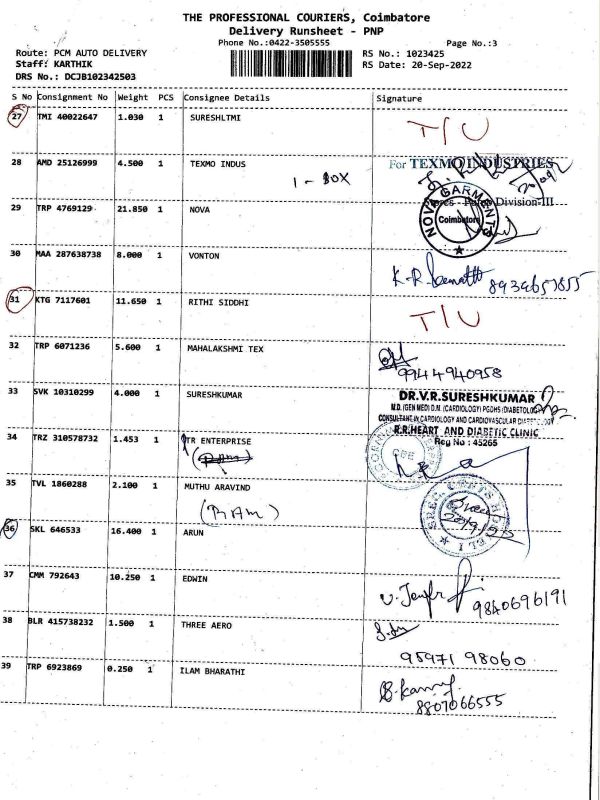 THE PROFESSIONAL COURIERS, Coimbatore
Delivery Runsheet - PNP
Phone No.:0422-3505555 Page No.:3
Route: PCM AUTO DELIVERY RS No.: 1023425
Staff: KARTHIK RS Date: 20-Sep-2022
DRS No.: DCJB102342503
S No Consignment No Weight PCS Consignee Details Signature
27 TMI 40022647 1.030 1 SURESHLTMI T/U
28 AMD 25126999 4.500 1 TEXMO INDUS For TEXMO INDUSTRIES
1 - BOX
Stores - Pump Division-III
29 TRP 4769129 21.850 1 NOVA NOVA GARMENTS Coimbatore
30 MAA 287638738 8.000 1 VONTON
K.R. 8939657855
31 KTG 7117601 11.650 1 RITHI SIDDHI T/U
32 TRP 6071236 5.600 1 MAHALAKSHMI TEX
99444940958
33 SVK 10310299 4.000 1 SURESHKUMAR DR.V.R.SURESHKUMAR
M.D.(GEN MED) D.M. (CARDIOLOGY) PGDHS (DIABETOLOGY)
CONSULTANT IN CARDIOLOGY AND CARDIOVASCULAR DIABETOLOGY
R.R.HEART AND DIABETIC CLINIC
Reg No : 45265
34 TRZ 310578732 1.453 1 TR ENTERPRISE
35 TVL 1860288 2.100 1 MUTHU ARAVIND
(RAM)
36 SKL 646533 16.400 1 ARUN
37 CMM 792643 10.250 1 EDWIN
9840696191
38 BLR 415738232 1.500 1 THREE AERO
95971 98060
39 TRP 6923869 0.250 1 ILAM BHARATHI
8807066555